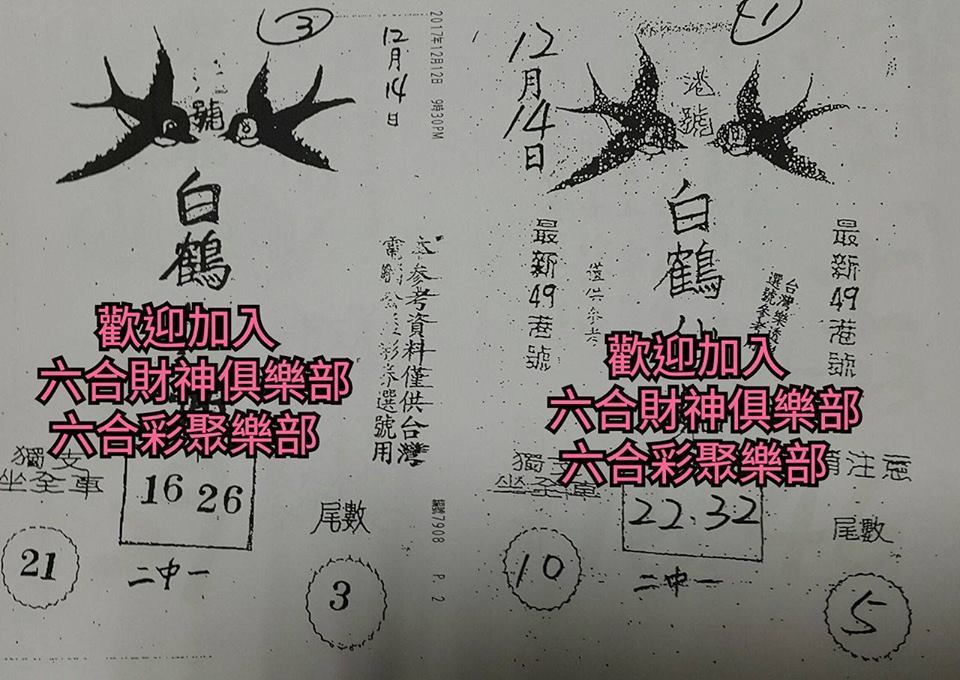 3
12月14日
2017年12月12日 9時30PM
號
白鶴
參考資料僅供台灣
選號用
歡迎加入
六合財神俱樂部
六合彩聚樂部
獨支
坐全車
16 26
尾數
21
二中一
3
7908 P. 2
1
12月14日
港號
白鶴仙
最新49港號
僅供參考
台灣樂透
選號參考
最新49港號
歡迎加入
六合財神俱樂部
六合彩聚樂部
請注意
獨支
坐全車
22.32
尾數
10
二中一
5